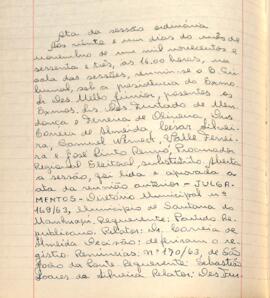 Ata da sessão ordinária
Aos vinte e um dias do mês de
novembro de um mil novecentos e
sessenta e três, às 16.00 horas, na
sala das sessões, reuniu-se o E. Tri-
bunal, sob a presidência do Exmo
Sr. Des Mello Junior, presentes os
Exmos. Srs. Des Furtado de Men-
donça e Ferreira de Oliveira, Drs.
Correia de Almeida, Cezar Silvei-
ra, Samuel Werneck, Valle Ferrei-
ra e José Pinto Renno, Procurador
Regional Eleitoral, substituto. Aberta
a sessão, foi lida e aprovada a
ata da reunião anterior - JULGA-
MENTOS - Diretório Municipal nº
169/63, Município de Santana do
Manhuaçu. Requerente: Partido Re-
publicano. Relator: Dr. Correia de
Almeida. Decisão: deferiram o re-
gistro. Renúncias: nº 170/63, de São
João da Ponte. Requerente: Sebastião
Soares da Silveira. Relator: Des Fur-